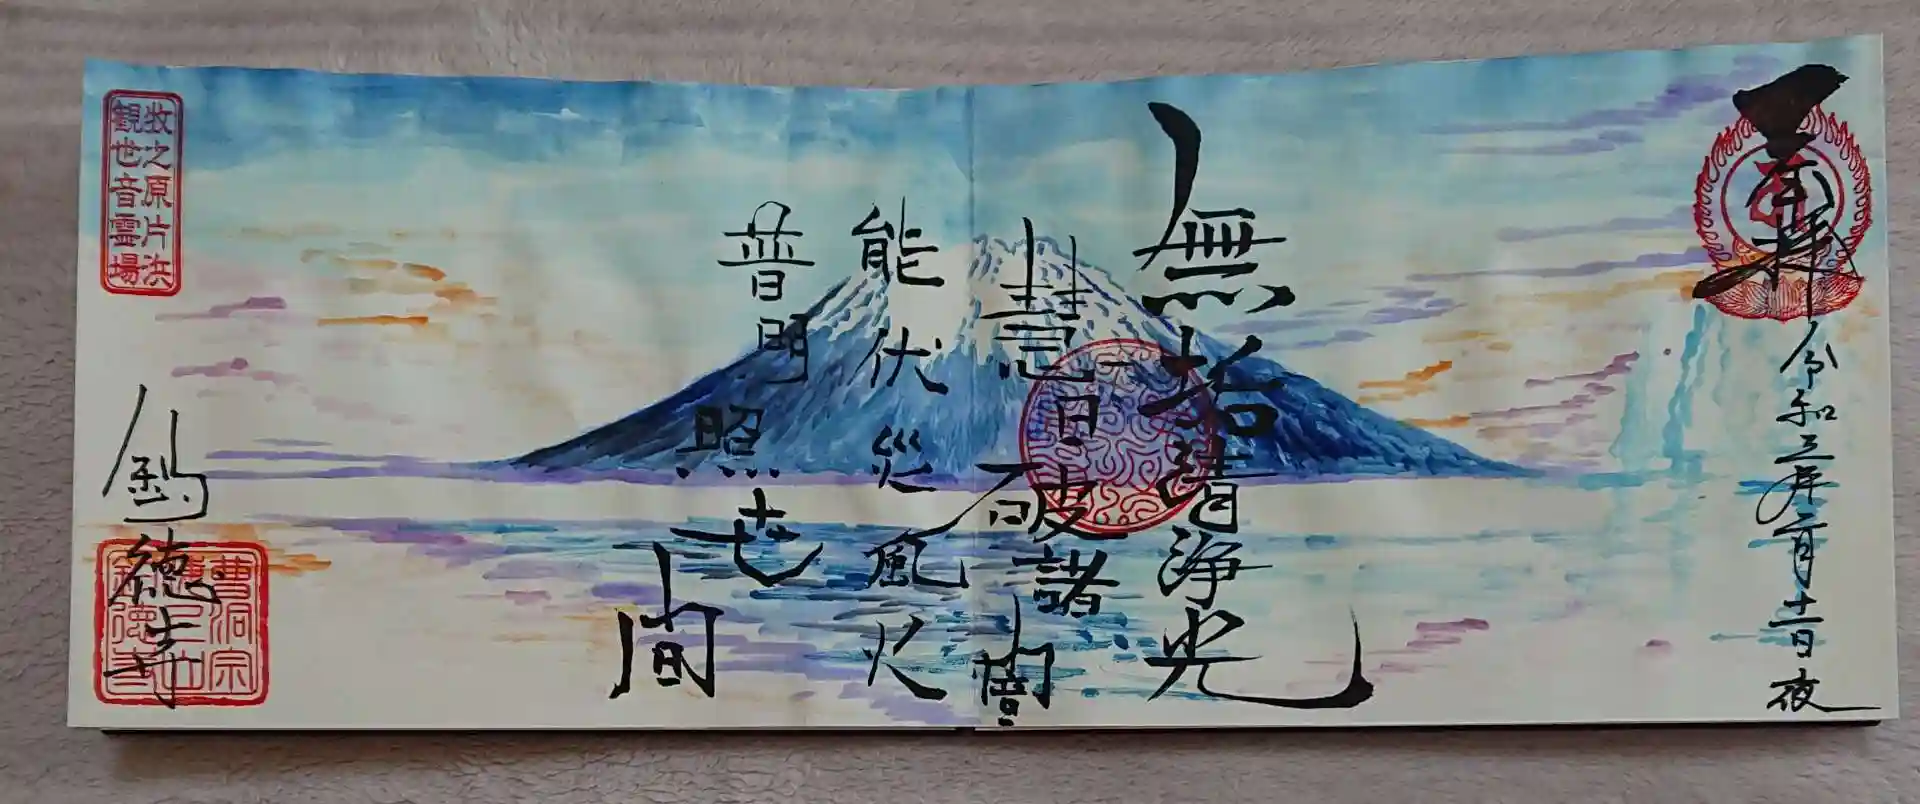 拝
令和三年二月十一日夜
無垢清浄光
慧日破諸闇
能伏災風火
普明照世間
牧之原片浜
観世音霊場
徳寺
曹洞宗